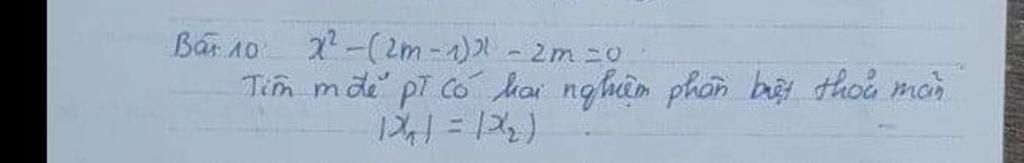 Bài 10: x² - (2m - 1)x - 2m = 0
Tìm m để PT có hai nghiệm phân biệt thoả mãn
|x₁| = |x₂|